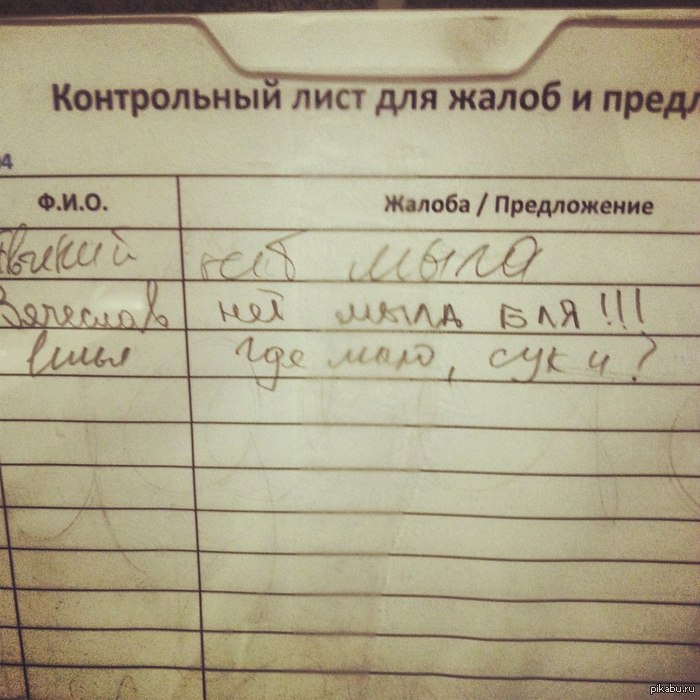 Контрольный лист для жалоб и предл
4
Ф.И.О. Жалоба / Предложение
нет мыла
Вячеслав нет мыла бля!!!
Илья где мыло, суки?
pikabu.ru